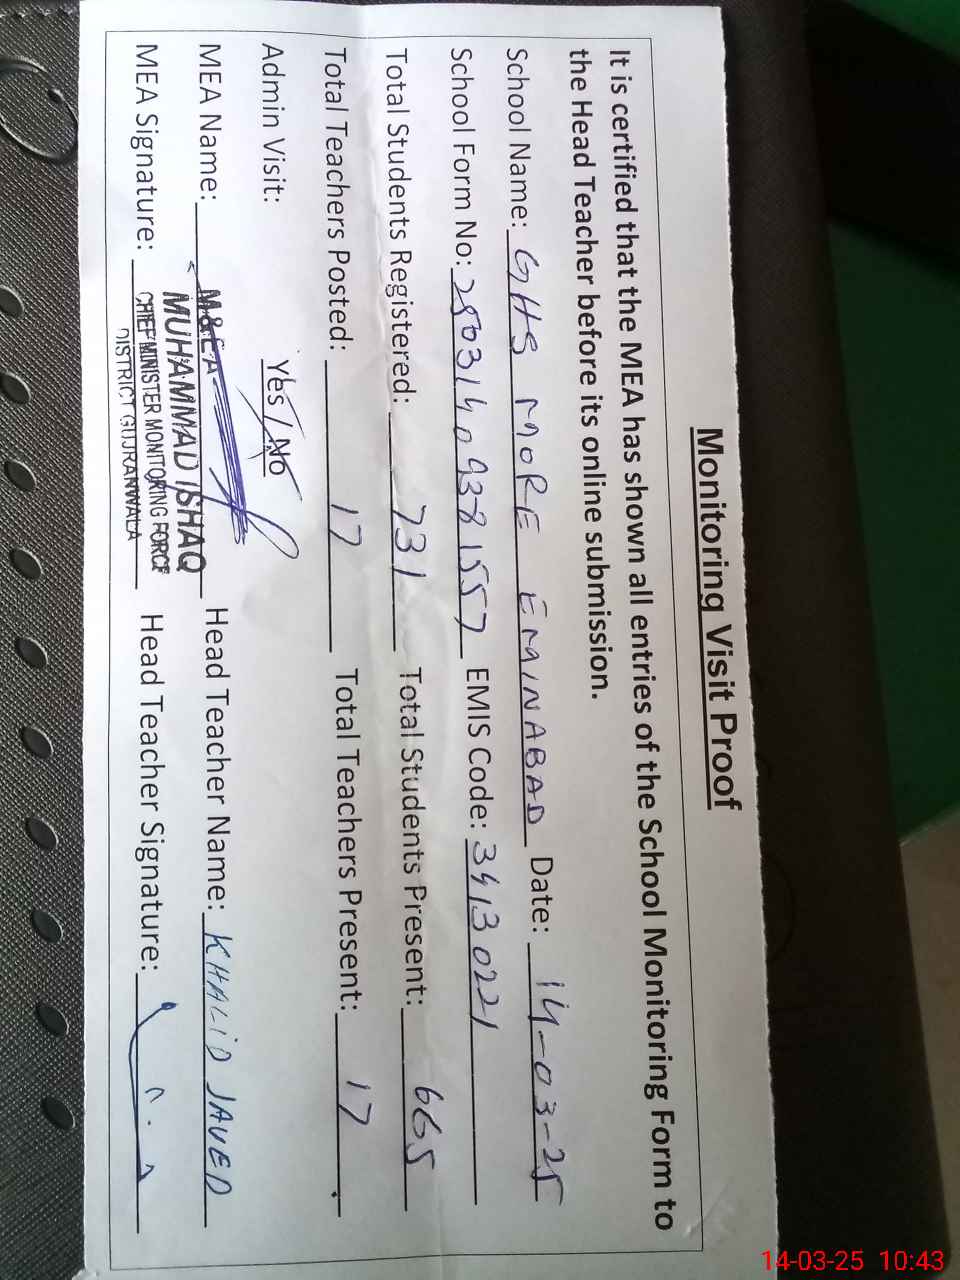 Monitoring Visit Proof
It is certified that the MEA has shown all entries of the School Monitoring Form to
the Head Teacher before its online submission.
School Name: GHS MORE EMINABAD Date: 14-03-25
School Form No: 2503140938157 EMIS Code: 34130221
Total Students Registered: 731 Total Students Present: 665
Total Teachers Posted: 17 Total Teachers Present: 17
Admin Visit: Yes / No
MEA Name: M&EA MUHAMMAD ISHAQ Head Teacher Name: KHALID JAVED
MEA Signature: CHIEF MINISTER MONITORING FORCE Head Teacher Signature:
DISTRICT GUJRANWALA
14-03-25 10:43